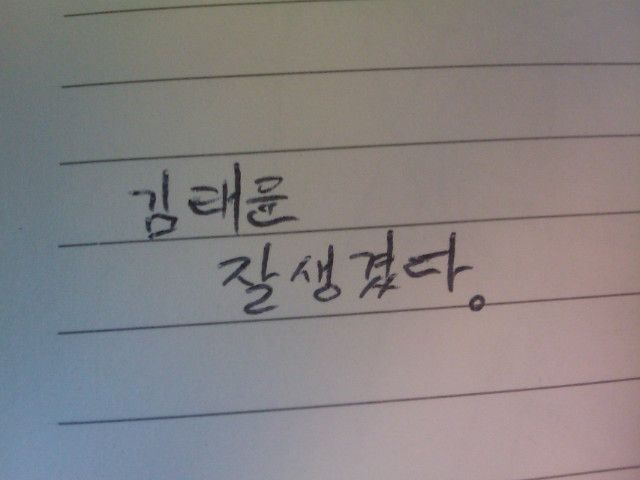 김태윤
잘생겼다。